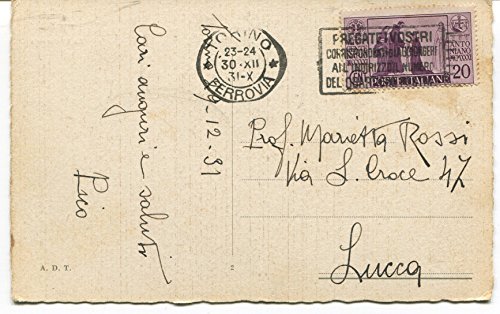 TORINO
23-24
30·XII
31-X
FERROVIA
PREGATE I VOSTRI
CORRISPONDENTI DI AGGIUNGERE
ALL'INDIRIZZO IL NUMERO
DEL QUARTIERE
POSTE ITALIANE
20
12-31
Cari auguri e saluti
Pico
Prof. Marietta Rossi
Via S. Croce 47
Lucca
A. D. T.
2